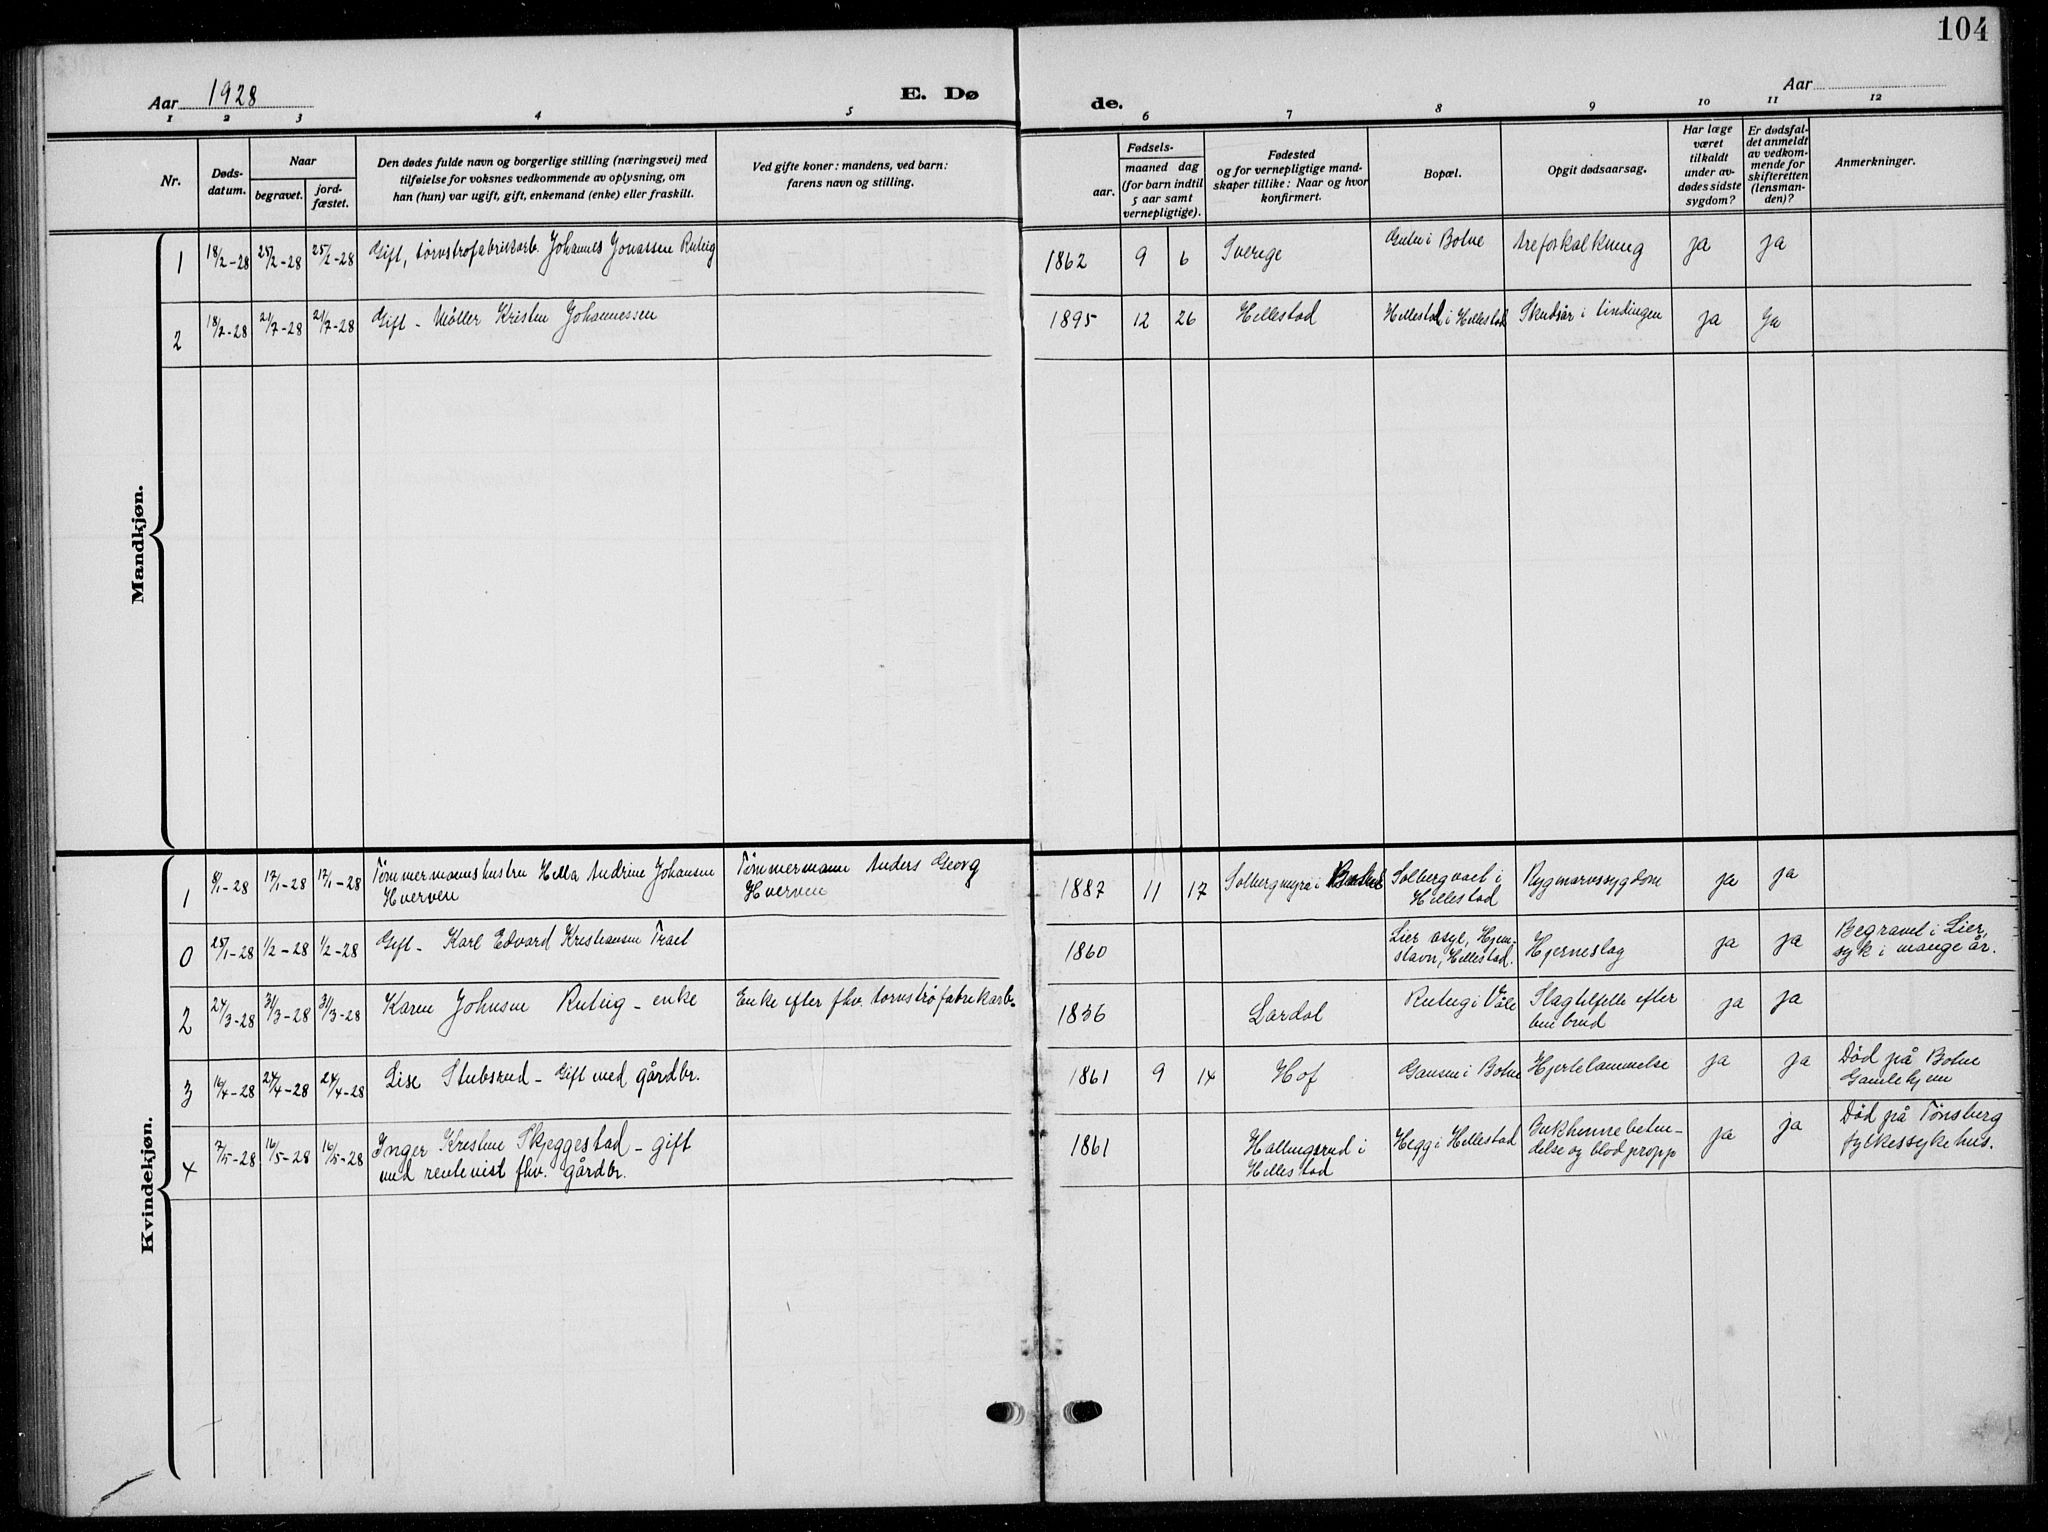 104
Aar 1928
E. Dø
de.
Aar
1 2 3 4 5 6 7 8 9 10 11 12
Nr.
Døds-
datum.
Naar
begravet.
jord-
fæstet.
Den dødes fulde navn og borgerlige stilling (næringsvei) med
tilføielse for voksnes vedkommende av oplysning, om
han (hun) var ugift, gift, enkemand (enke) eller fraskilt.
Ved gifte koner: mandens, ved barn:
farens navn og stilling.
Fødsels-
aar.
maaned dag
(for barn indtil
5 aar samt
vernepligtige).
Fødested
og for vernepligtige mand-
skaper tillike: Naar og hvor
konfirmert.
Bopæl.
Opgit dødsaarsag.
Har læge
været
tilkaldt
under av-
dødes sidste
sygdom?
Er dødsfal-
det anmeldt
av vedkom-
mende for
skifteretten
(lensman-
den)?
Anmerkninger.
Mandkjøn.
1 18/2-28 25/2-28 25/2-28 Gift, torvstrøfabrikarb. Johannes Jonassen 1862 9 6 Sverige i Botne Areforkalkning ja ja
2 18/7-28 21/7-28 21/7-28 Gift - Møller Kristen Johannessen 1895 12 26 Hillestad Hillestad i Hillestad Skudsår i tindingen ja Ja
Kvindekjøn.
1 8/1-28 12/1-28 12/1-28 Tømmermannshustru Hella Andrine Johansen
Hverven
Tømmermann Anders Georg
Hverven
1887 11 17 Solbergmyra i Solberg i
Hillestad
Rygmarvssygdom ja ja
0 25/1-28 1/2-28 1/2-28 Gift - Karl Edvard Kristiansen 1860
Lier asyl, Hjem-
stavn, Hillestad.
Hjerneslag ja ja
Begravet i Lier,
syk i mange år.
2 24/3-28 31/3-28 31/3-28 Karen Johnsen - enke Enke efter fhv. torvstrøfabrikarb. 1836 Lardal i Våle
Slagtilfelle efter
benbrud
ja ja
3 16/4-28 24/4-28 24/4-28 Lise Stubsrud - Gift med gårdbr. 1861 9 14 Hof i Botne Hjertelammelse ja ja
Død på Botne
Gamlehjem
4 7/5-28 16/5-28 16/5-28 Inger Kristine Skjeggestad - gift
med rentenist fhv. gårdbr.
1861 Hallingsrud i
Hillestad
Hegg i Hillestad
Bukhinnebeten-
delse og blodpropp
ja ja
Død på Tønsberg
fylkessykehus.